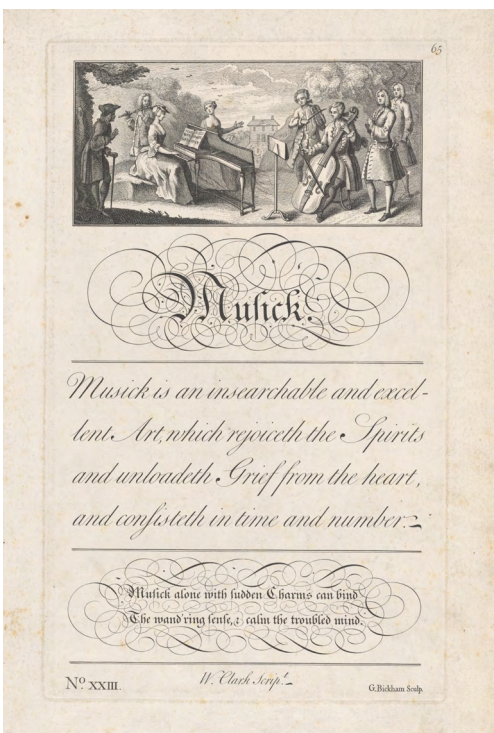 65
Musick.
Musick is an insearchable and excel-
lent Art, which rejoiceth the Spirits
and unloadeth Grief from the heart,
and consisteth in time and number.
Musick alone with sudden Charms can bind
The wand'ring sense, & calm the troubled mind.
No. XXIII.
W. Clark Script.
G. Bickham Sculp.